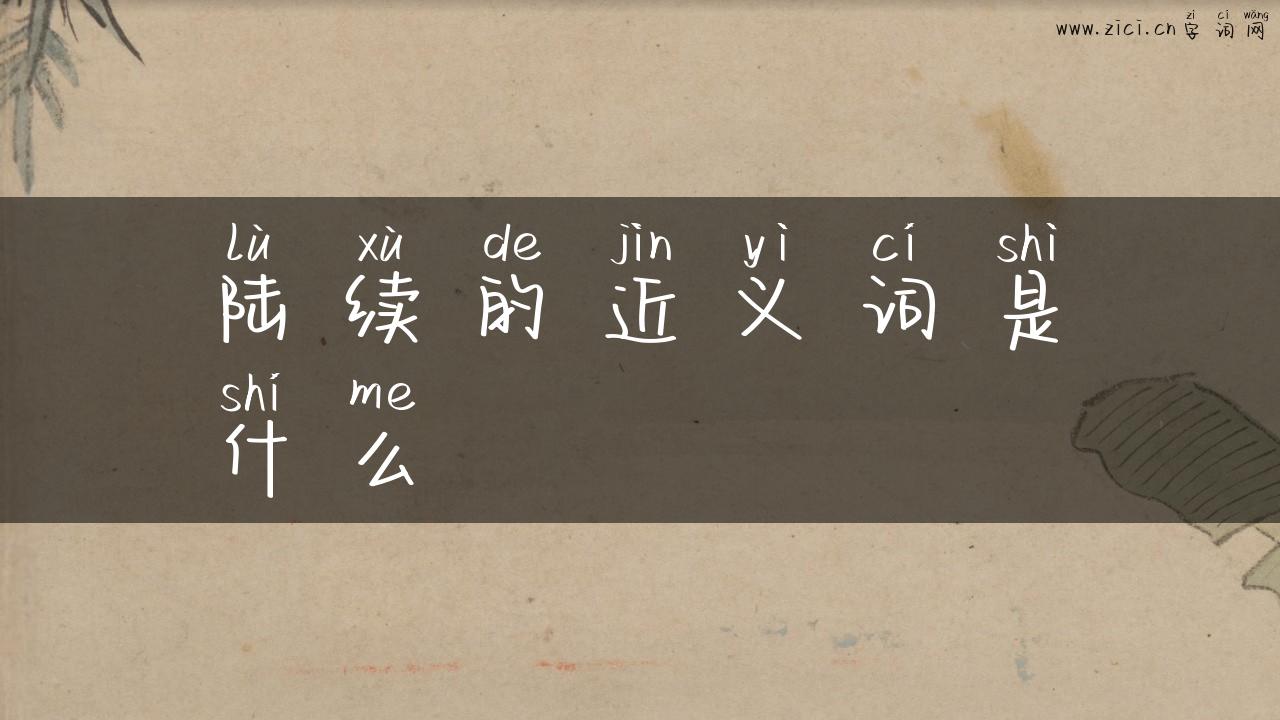 zì cí wǎng
www.zici.cn 字 词 网
lù xù de jìn yì cí shì
陆 续 的 近 义 词 是
shí me
什 么